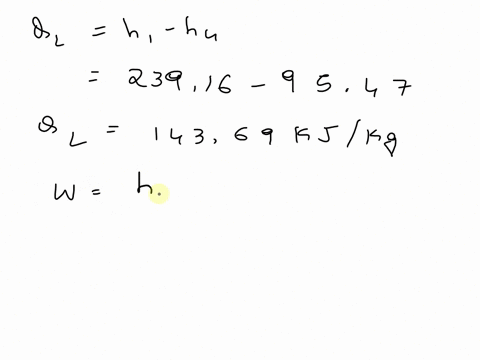 Q_L = h₁ - h₄
= 239.16 - 95.47
Q_L = 143.69 KJ/Kg
W = h